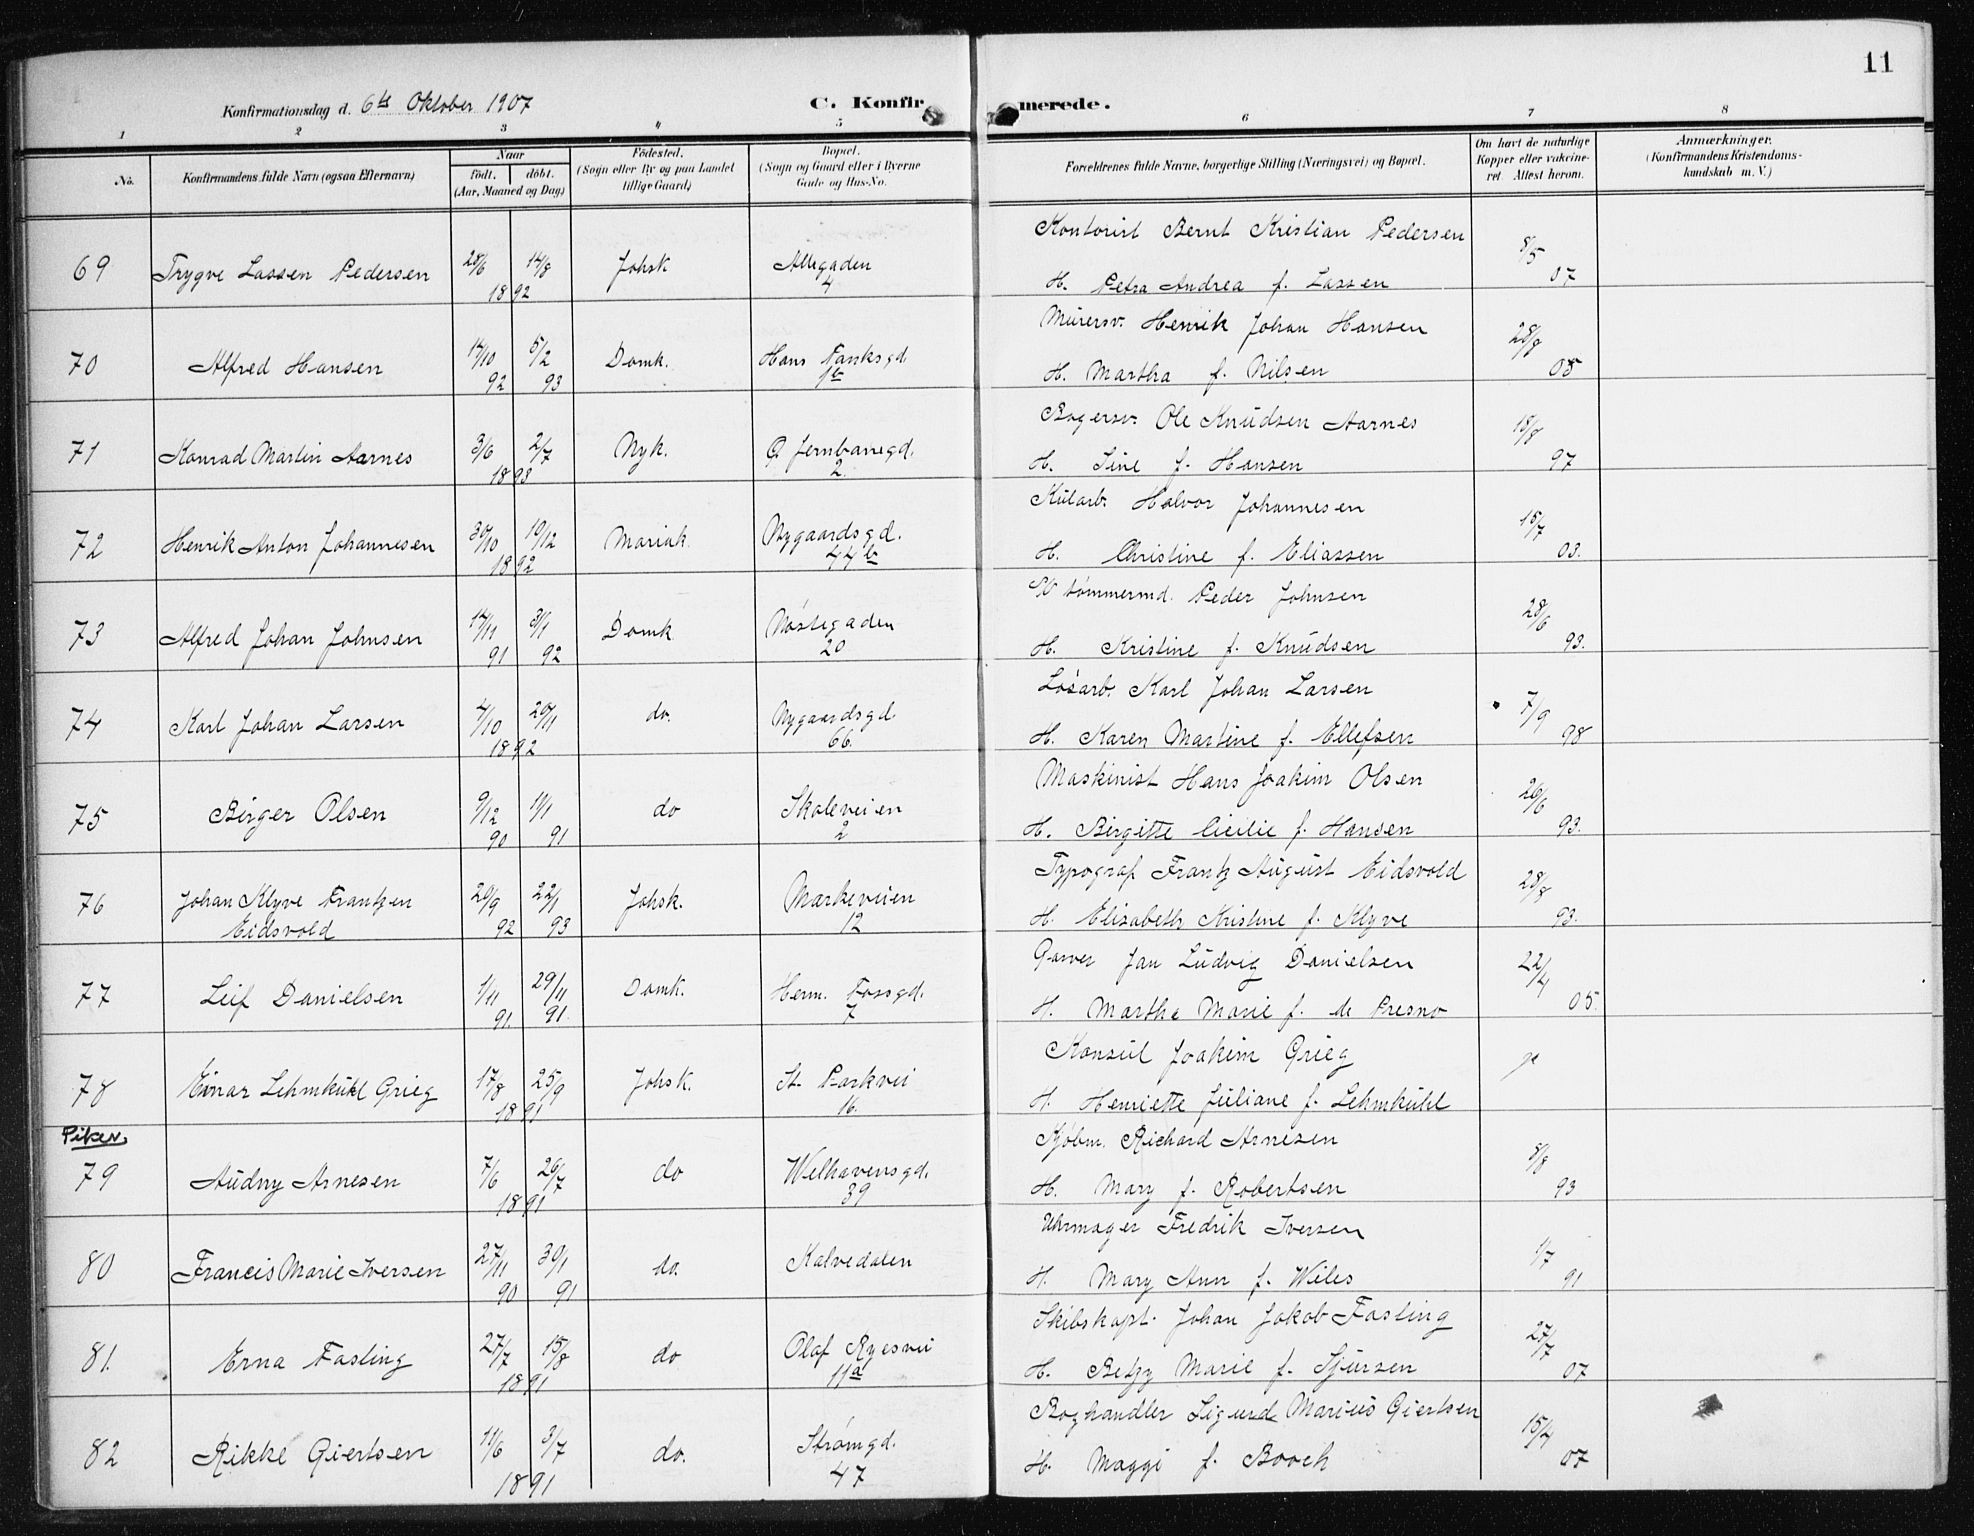 11
Konfirmationsdag d. 6te Oktober 1907
C. Konfirmerede.
1 2 3 4 5 6 7 8
No.
Konfirmandens fulde Navn (ogsaa Efternavn)
Naar
født. døbt.
(Aar, Maaned og Dag)
Fødested.
(Sogn eller By og paa Landet
tillige Gaard)
Bopæl.
(Sogn og Gaard eller i Byerne
Gade og Hus-No.
Forældrenes fulde Navne, borgerlige Stilling (Næringsvei) og Bopæl.
Om havt de naturlige
Kopper eller vakcine-
ret Attest herom.
Anmærkninger.
(Konfirmandens Kristendoms-
kundskab m. V.)
69 Trygve Lassen Pedersen 28/6 14/8 1892 Johsk Allegaden 4
Kontorist Bernt Kristian Pedersen 8/5
H. Petra Andrea f. Lassen 07
70 Alfred Hansen 14/10 92 5/2 93 Domk. Hans Tanksgd. 1b
Murersv. Henrik Johan Hansen 28/8
H. Martha f. Nilsen 05
71 Konrad Martin Aarnes 3/6 2/7 1893 Nyk. Jernbanegd. 2.
Bogersv. Ole Knudsen Aarnes 18/8
H. Sine f. Hansen 97
72 Henrik Anton Johannesen 30/10 19/12 1892 Mariak. Nygaardsgd. 44b
Kularb. Halvor Johannesen 15/7
H. Christine f. Eliassen 03.
73 Alfred Johan Johnsen 14/11 91 3/1 92 Domk Nøstegaden 20
tømmermd. Peder Johnsen 28/6
H. Kristine f. Knudsen 93.
74 Karl Johan Larsen 4/10 20/11 1892 do. Nygaardsgd. 66.
Løsarb. Karl Johan Larsen 7/9
H. Karen Martine f. Ellefsen 98
75 Birger Olsen 9/12 90 11/1 91 do Skoleveien 2
Maskinist Hans Joakim Olsen 26/6
H. Birgitte Cicilie f. Hansen 93.
76 Johan Klyve Frantzen 20/9 92 22/1 93 Johsk. Markeveien 12
Eidsvold
Typograf Frantz August Eidsvold 28/8
H. Elizabeth Kristine f. Klyve 93.
77 Leif Danielsen 1/11 91. 29/11 91. Domk. Herm. Fossgd. 7
Garver Jan Ludvig Danielsen 22/4
H. Martha Marie f. de Presno 05.
78 Einar Lehmkuhl Grieg 17/8 25/9 1891 Johsk. St. Parkvei 16.
Konsul Joakim Grieg ja
H. Henriette Juliane f. Lehmkuhl
Piker.
79 Audny Arnesen 7/6 26/7 1891 do Welhavensgd. 39
Kjøbm. Richard Arnesen 8/8
H. Mary f. Robertsen 93
80 Francis Marie Iversen 27/11 90 30/1 91 do. Kalvedalen
Uhrmager Fredrik Iversen 1/7
H. Mary Ann f. Wiles 91
81. Erna Fasting 27/7 15/8 1891 do Olaf Ryesvei 11a
Skibskapt. Johan Jakob Fasting 27/7
H. Betzy Marie f. Sjursen 07
82 Rikke Giertsen 11/6 3/7 1891 do. Strømgd. 47
Boghandler Sigurd Marius Giertsen 15/4
H. Maggi f. Booch 07